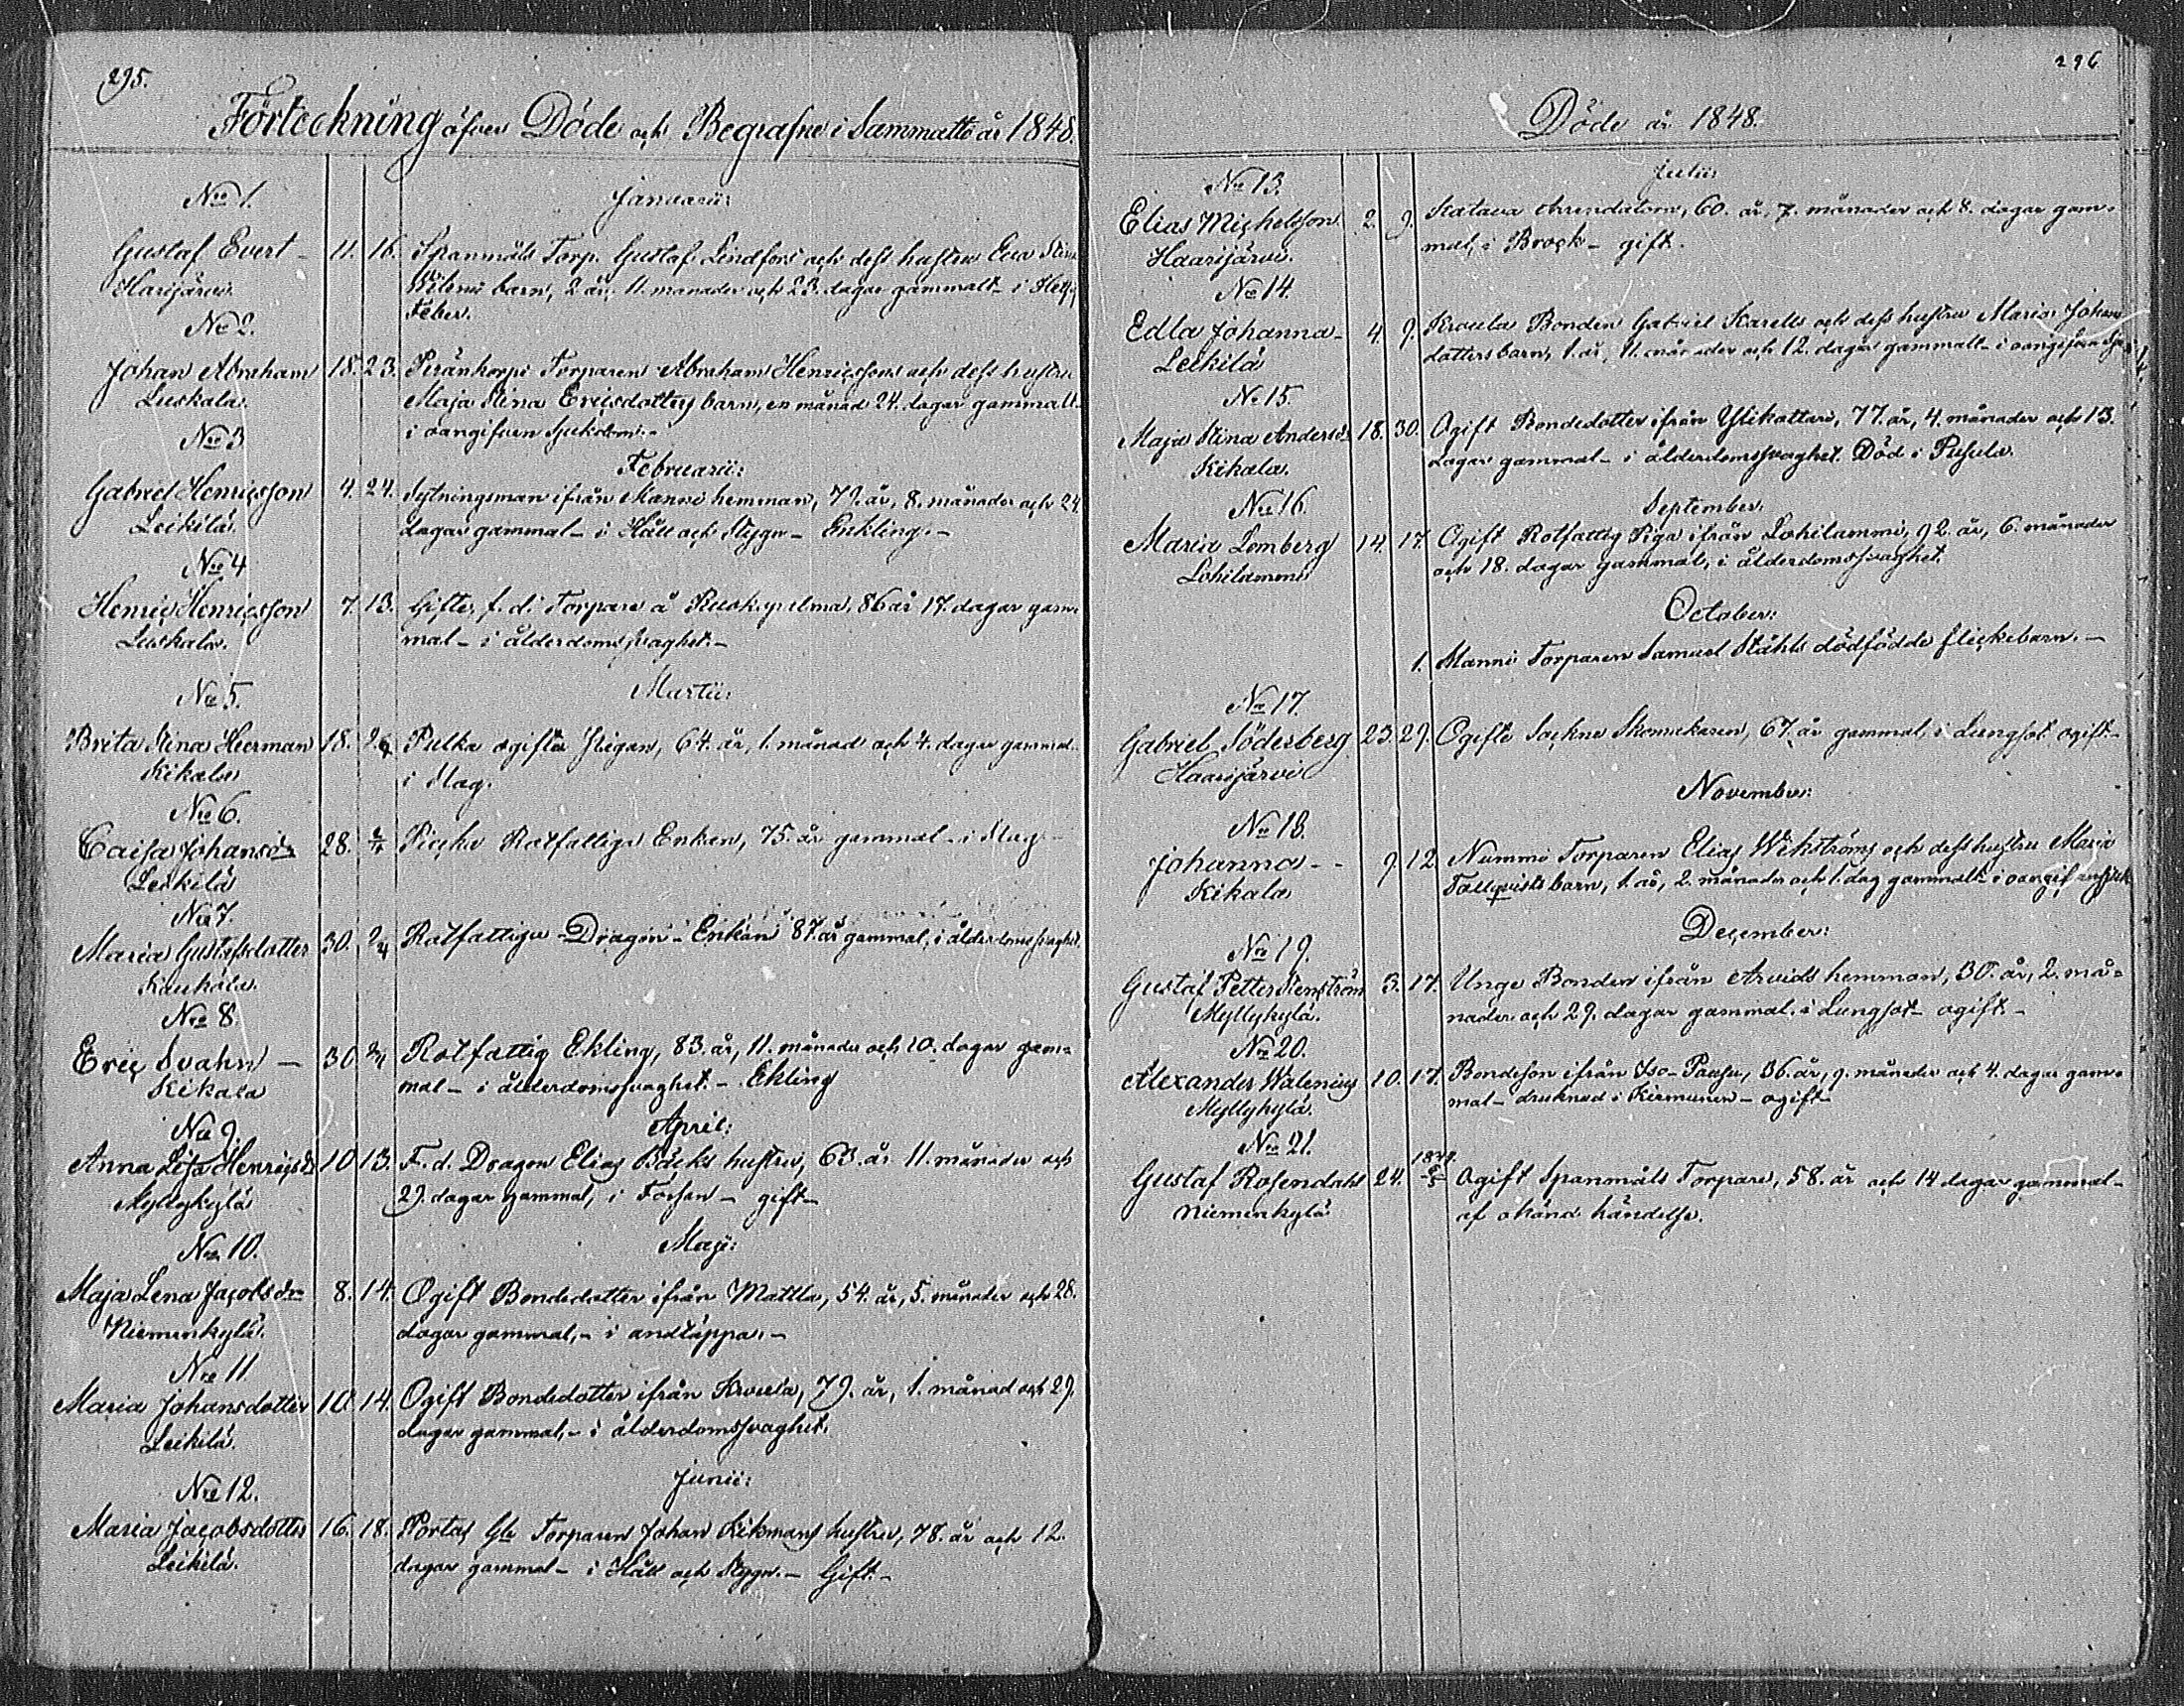 295.
Förteckning öfver Döde och Begrafne i Sammatti år 1848.
No 1.
Januarii:
Gustaf Evert – 11. 16. Spanmåls Torp. Gustaf Lindfors och dess hustru Eva Stina
Harijärvi. barn, 2 år, 11. månader och 23. dagar gammalt – i Het
Feber.
No 2.
Johan Abraham 18. 23. Peränkorpi Torparen Abraham Henricssons och dess hustru
Luskala. Maja Stina Ericsdotters barn, en månad 24. dagar gammalt
i oangifven sjukdom. –
No 3
Februarii:
Gabriel Henricsson 4. 24. Sytningsman ifrån Manni hemman, 79. år, 8. månader och 24.
Leikilä. dagar gammal – i Håll och Stygn – Enkling. –
No 4
Henric Henricsson 7. 13. Gifte, f. d. Torpare å 86 år 17. dagar gam-
Luskala. mal – i ålderdomssvaghet. –
No 5.
Martii:
Brita Stina Heerman 18. 26. Pulka ogifta Pigan, 64. år, 1. månad och 4. dagar gammal.
Kikala i Slag.
No 6.
Caisa Johansdr 28. Rotfattiga Enkan, 75. år gammal – i Slag –
Leikilä
No 7.
Maria Gustafsdotter 30. 2/4 Rotfattiga Dragon-Enkan 87. år gammal, i ålderdomssvaghet.
Kaukola.
No 8.
Eric Svahn – 30. 2/4 Rotfattig Ekling, 83. år, 11. månader och 10. dagar gam-
Kikala mal – i ålderdomssvaghet. – Ekling
No 9.
April:
Anna Lisa Henricsdr 10. 13. F. d. Dragon Elias Bäcks hustru, 63. år 11. månader och
Myllykylä 29. dagar gammal, i Torsen – gift –
No 10.
Maji:
Maja Lena Jacobsdr 8. 14. Ogift Bondedotter ifrån Mattla, 54. år, 5. månader och 28.
Niemenkylä. dagar gammal, – i andtäppa. –
No 11
Maria Johansdotter 10. 14. Ogift Bondedotter ifrån Kroula, 79. år, 1. månad och 29.
Leikilä. dagar gammal, – i ålderdomssvaghet.
No 12.
Junii:
Maria Jacobsdotter 16. 18. Portas Torparen Johan hustru, 78. år och 12.
Leikilä. dagar gammal – i Håll och Stygn. – Gift. –
296
Döde år 1848.
No 13.
Julii:
Elias Michelsson 2. 9. Katava Arrendatorn, 60. år, 7. månader och 8. dagar gam-
Haarijärvi. mal, i Brock – gift.
No 14.
Edla Johanna – 4. 9. Kroula Bonden Gabriel Karells och dess hustru Maria Johans
Leikilä dotters barn, 1. år, 11. månader och 12. dagar gammalt – i oangifven
No 15.
Maja Stina Andersdr 18. 30. Ogift Bondedotter ifrån Ylikattari, 77. år, 4. månader och 13.
Kikala. dagar gammal – i ålderdomssvaghet. Död i Pusula.
No 16.
September:
Maria Lomberg 14. 17. Ogift Rotfattig Piga ifrån Lohilammi, 92. år, 6. månader
Lohilammi och 18. dagar gammal, i ålderdomssvaghet.
October:
1. Manni Torparen Samuel Ståhls dödfödda flickebarn. –
No 17.
Gabriel Söderberg 23. 29. Ogifte Sockne Skomakaren, 67. år gammal, i Lungsot ogift –
Haarijärvi
November:
No 18.
Johanna – – 9. 12. Nummi Torparen Elias Wikströms och dess hustru Maria
Kikala Tallqvists barn, 1. år, 2. månader och 1. dag gammalt i oangif.
December:
No 19.
Gustaf Petter 3. 17. Unge Bonden ifrån Arvids hemman, 30. år, 2. må-
Myllykylä. nader och 29. dagar gammal. i Lungsot – ogift. –
No 20.
Alexander Walenius 10. 17. Bondeson ifrån Iso-Paasu, 36. år, 9. månader och 4. dagar gam-
Myllykylä. mal – druknad i Kirmusen – ogift
No 21.
Gustaf Rosendahl 24. Ogift Spanmåls Torpare, 58. år och 14 dagar gammal –
Niemenkylä af okänd händelse.